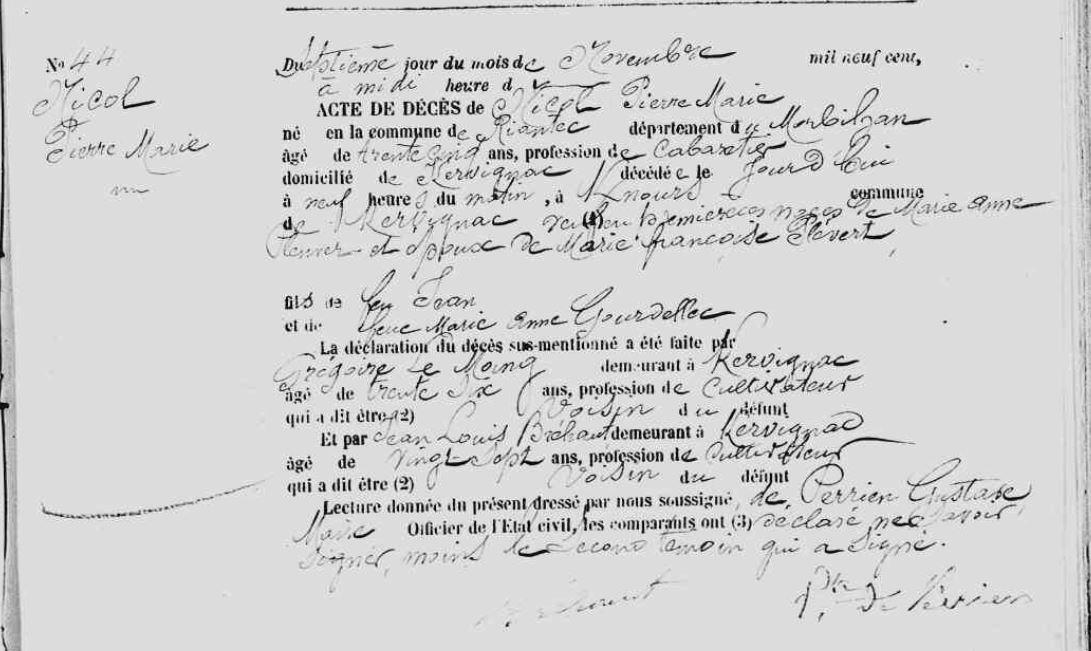 No 44
Nicol
Pierre Marie
Du septième jour du mois de Novembre mil neuf cent,
à midi heure d
ACTE DE DÉCÈS de Nicol Pierre Marie
né en la commune de Riantec département du Morbihan
âgé de trente cinq ans, profession de Cabaretier
domicilié de Kervignac décédé le Jourd'hui
à neuf heures du matin, à commune
de Kervignac veuf en premières noces de Marie Anne
et époux de Marie françoise Plévert
fils de feu Jean
et de feue Marie Anne Gourdellec
La déclaration du décès sus-mentionné a été faite par
Grégoire Le Moing demeurant à Kervignac
âgé de trente Six ans, profession de Cultivateur
qui a dit être (2) Voisin du défunt
Et par Jean Louis Bréhaut demeurant à Kervignac
âgé de Vingt Sept ans, profession de Cultivateur
qui a dit être (2) Voisin du défunt
Lecture donnée du présent dressé par nous soussigné, de Perrien Gustave
Maire Officier de l'Etat civil, les comparants ont (3) déclaré ne Savoir
Signer, moins le Second témoin qui a Signé.
de Perrien